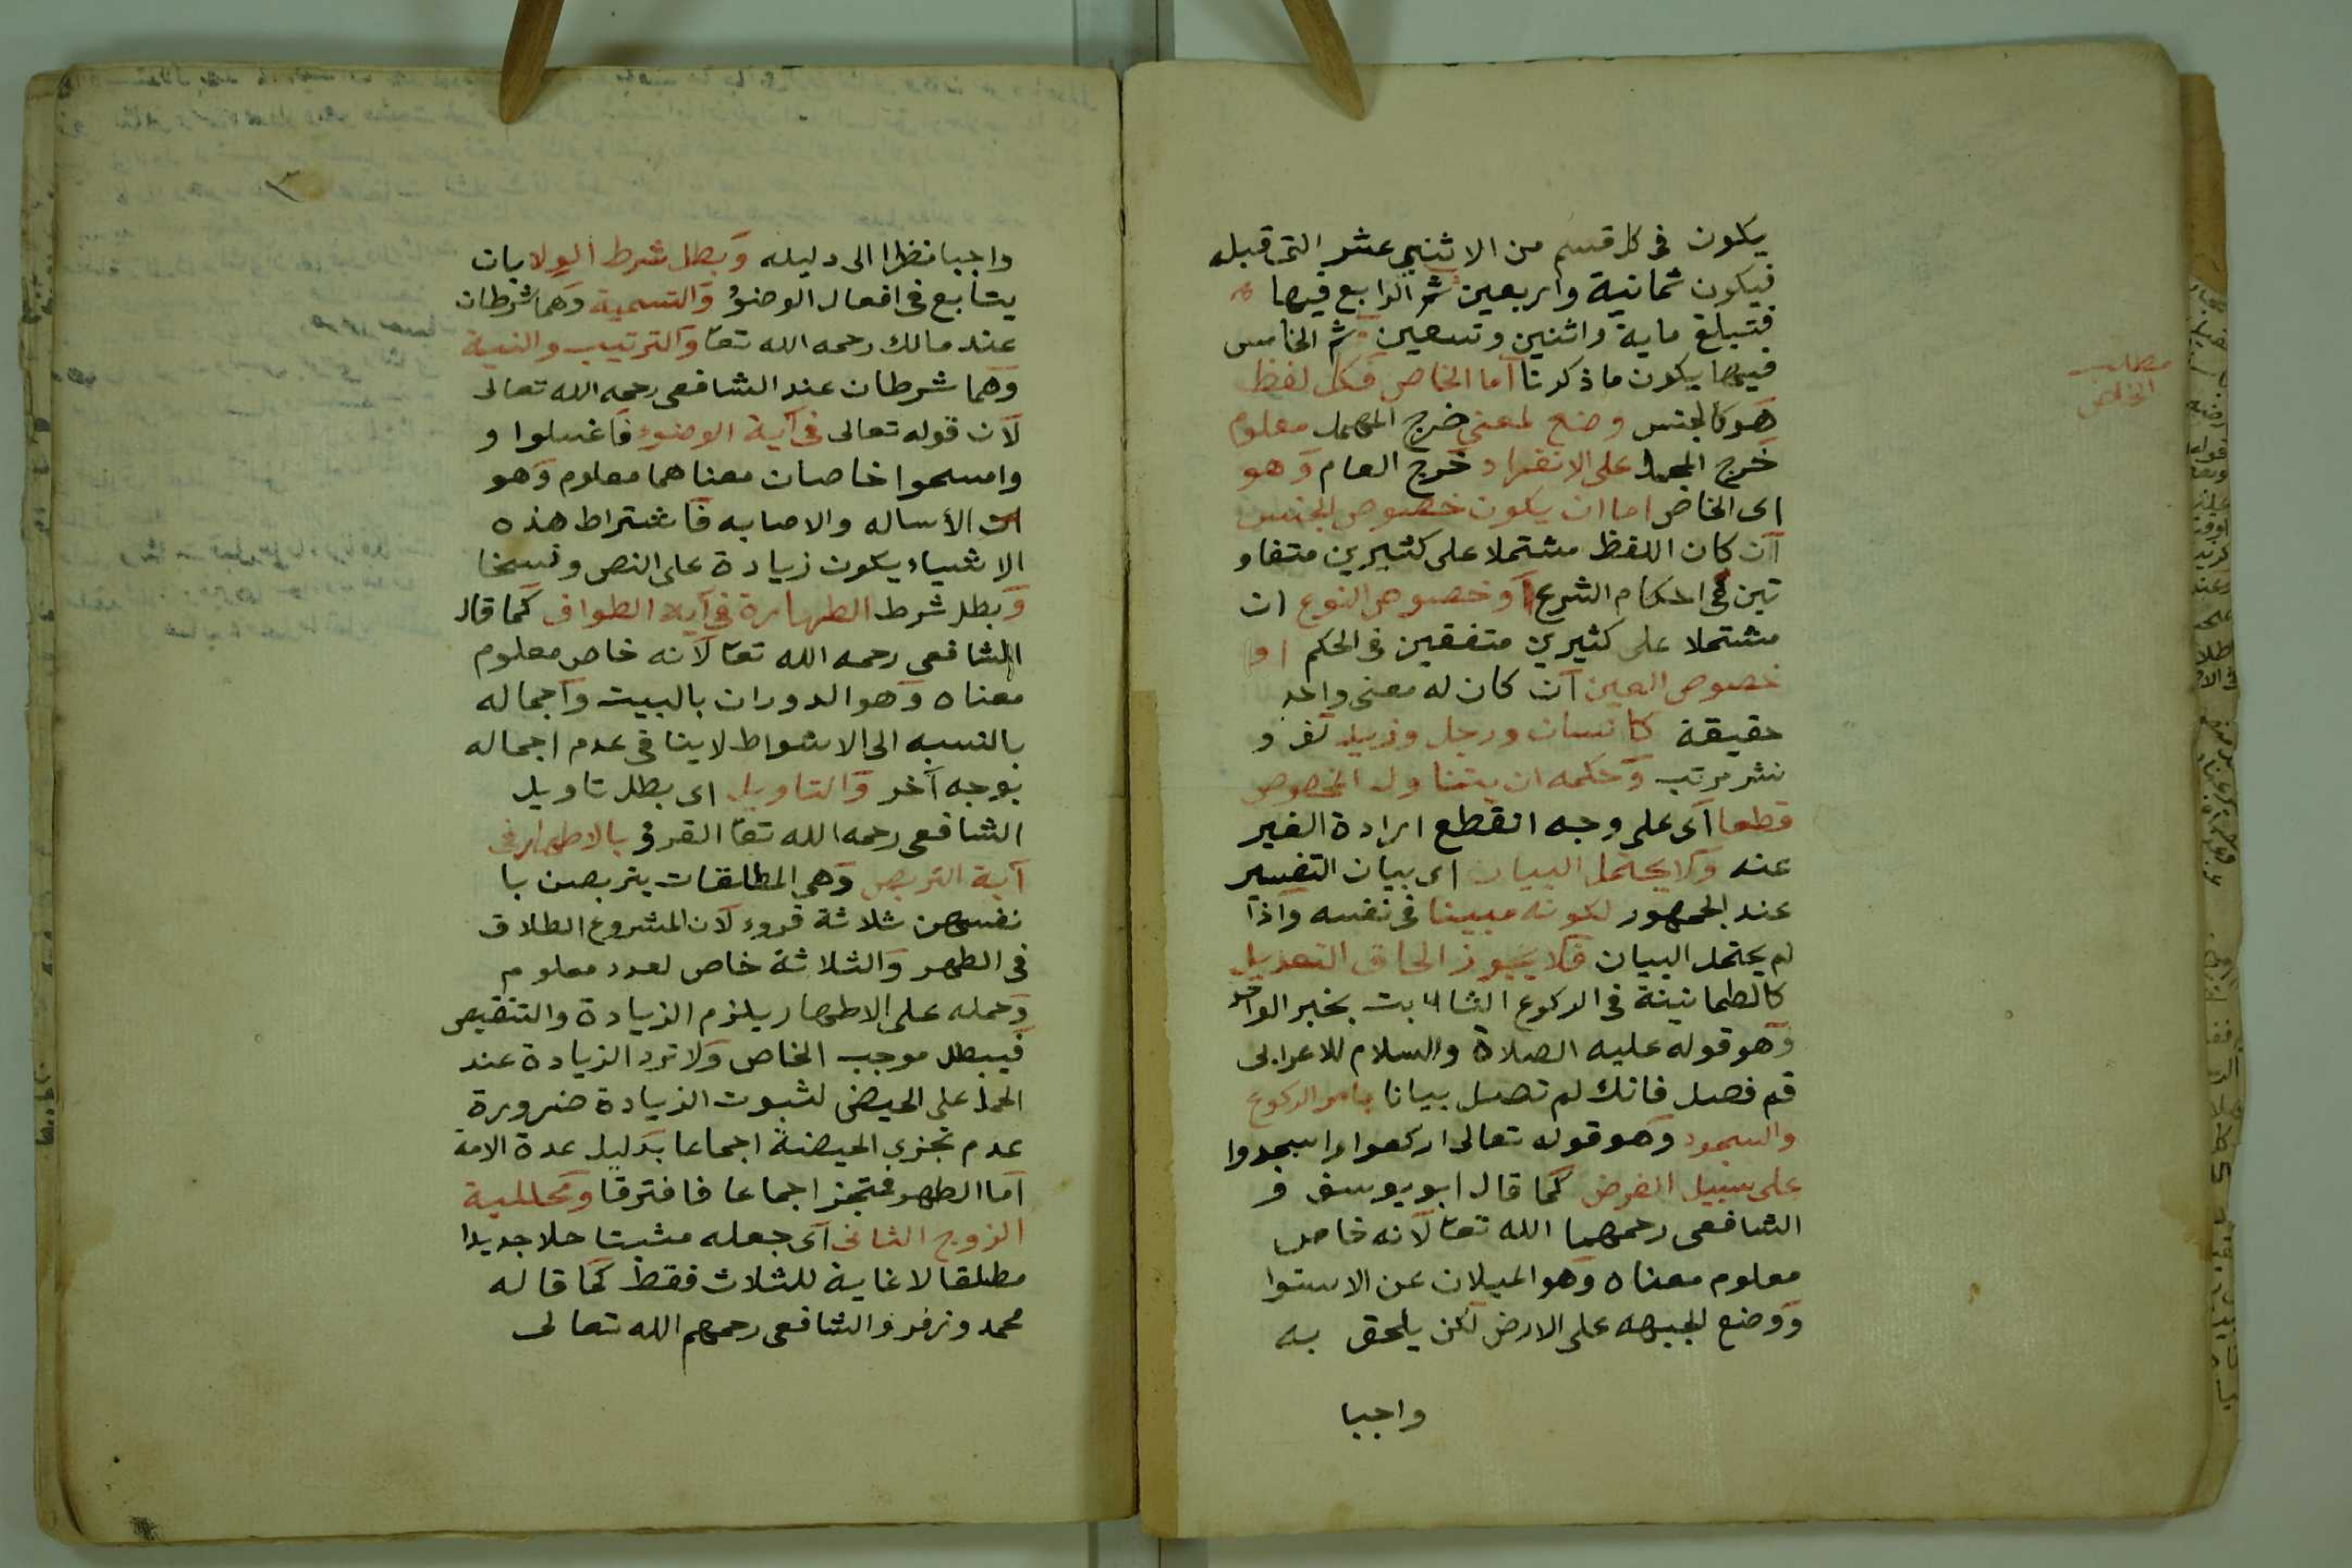 يكون فى كل قسم من الاثنى عشر التى قبله
فيكون ثمانية واربعين ثم الرابع فيها
فتبلغ ماية واثنين وتسعين ثم الخامس
فيها يكون ما ذكرنا اما الخاص فكل لفظ
هو كالجنس وضع لمعنى خرج المهمل معلوم
خرج المجمل على الانفراد خرج العام وهو
اى الخاص اما ان يكون خصوص الجنس
ان كان اللفظ مشتملا على كثيرين متفاو
تين فى احكام الشرع او خصوص النوع ان
مشتملا على كثيرين متفقين فى الحكم او
خصوص العين ان كان له معنى واحد
حقيقة كانسان ورجل وزيد لف و
نشر مرتب وحكمه ان يتناول المخصوص
قطعا اى على وجه انقطع ارادة الغير
عنه ولا يحتمل البيان اى بيان التفسير
عند الجمهور لكونه مبينا فى نفسه واذا
لم يحتمل البيان فلا يجوز الحاق التعديل
كالطمانينة فى الركوع الثابت بخبر الواحد
وهو قوله عليه الصلاة والسلام للاعرابى
قم فصل فانك لم تصل بيانا بامر الركوع
والسجود وهو قوله تعالى اركعوا واسجدوا
على سبيل الفرض كما قال ابو يوسف و
الشافعى رحمهما الله تعا لانه خاص
معلوم معناه وهو الميلان عن الاستوا
ووضع الجبهه على الارض لكن يلحق به
واجبا
مطلب
الخاص
واجبا نظرا الى دليله وبطل شرط الولا بان
يتابع فى افعال الوضؤ والتسمية وهما شرطان
عند مالك رحمه الله تعا والترتيب والنية
وهما شرطان عند الشافعى رحمه الله تعالى
لان قوله تعالى فى آية الوضوء فاغسلوا و
وامسحوا خاصان معناهما معلوم وهو
الأساله والاصابه فاشتراط هذه
الاشياء يكون زيادة على النص ونسخا
وبطل شرط الطهارة فى آية الطواف كما قال
الشافعى رحمه الله تعا لانه خاص معلوم
معناه وهو الدوران بالبيت واجماله
بالنسبه الى الاشواط لا ينافى عدم اجماله
بوجه آخر والتاويل اى بطل تاويل
الشافعى رحمه الله تعا القروء بالاطهار فى
آية التربص وهى المطلقات يتربصن با
نفسهن ثلاثة قروء لان المشروع الطلاق
فى الطهر والثلاثة خاص لعدد معلوم
وحمله على الاطهار يلزم الزيادة والتنقيص
فيبطل موجب الخاص ولا ترد الزيادة عند
الحمل على الحيض لثبوت الزيادة ضرورة
عدم تجزى الحيضة اجماعا بدليل عدة الامة
اما الطهر فتجز اجماعا فافترقا ومحللية
الزوج الثانى اى جعله مثبتا حلا جديدا
مطلقا لا غاية للثلاث فقط كما قاله
محمد وزفر والشافعى رحمهم الله تعالى